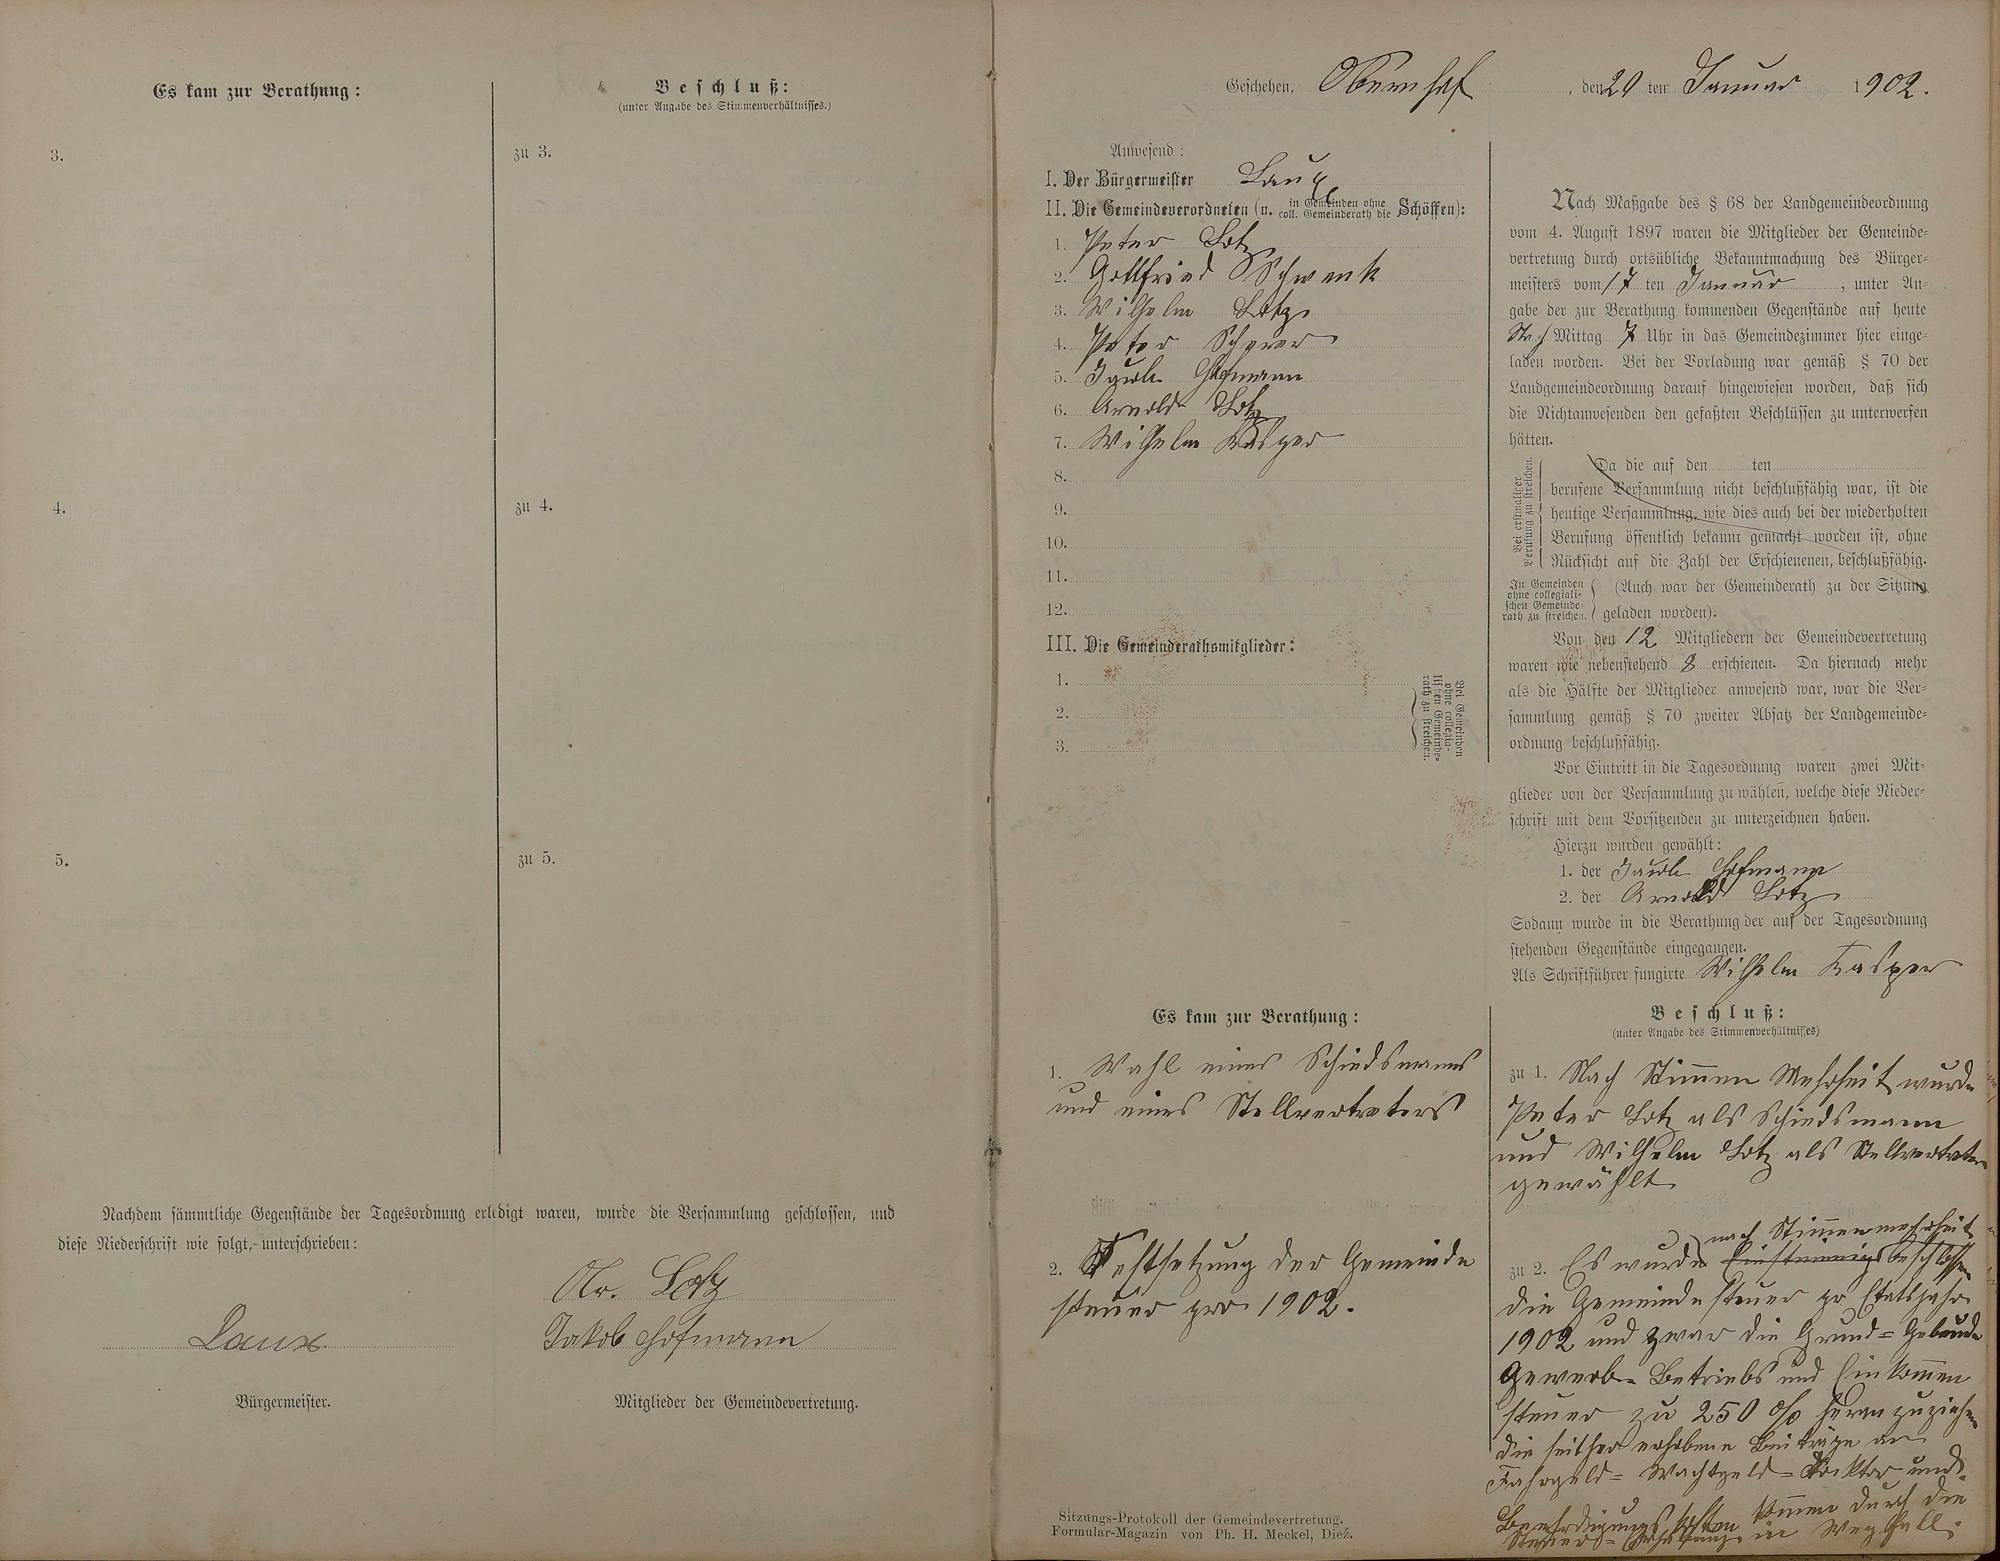 Es kam zur Berathung:
Beschluß:
(unter Angabe des Stimmenverhältnisses.)
3.
zu 3.
4.
zu 4.
5.
zu 5.
Nachdem sämmtliche Gegenstände der Tagesordnung erledigt waren, wurde die Versammlung geschlossen, und
diese Niederschrift wie folgt, unterschrieben:
Ar. Lotz
Laux
Jakob Hofmann
Bürgermeister.
Mitglieder der Gemeindevertretung.
Geschehen, Obernhof, den 20 ten Januar 1902.
Anwesend:
I. Der Bürgermeister Laux
II. Die Gemeindeverordneten (u. in Gemeinden ohne coll. Gemeinderath die Schöffen):
1. Peter Lotz
2. Gottfried Schwenk
3. Wilhelm Lotz
4. Peter Scherer
5. Jacob Hofmann
6. Arnold Lotz
7. Wilhelm Kasper
8.
9.
10.
11.
12.
III. Die Gemeinderathsmitglieder:
1.
2.
3.
Bei Gemeinden
ohne collegia-
lischen Gemeinde-
rath zu streichen.
Nach Maßgabe des § 68 der Landgemeindeordnung
vom 4. August 1897 waren die Mitglieder der Gemeinde-
vertretung durch ortsübliche Bekanntmachung des Bürger-
meisters vom 17 ten Januar, unter An-
gabe der zur Berathung kommenden Gegenstände auf heute
Nach Mittag 7 Uhr in das Gemeindezimmer hier einge-
laden worden. Bei der Vorladung war gemäß § 70 der
Landgemeindeordnung darauf hingewiesen worden, daß sich
die Nichtanwesenden den gefaßten Beschlüssen zu unterwerfen
hätten.
Bei erstmaliger
Berufung zu streichen.
Da die auf den ten
berufene Versammlung nicht beschlußfähig war, ist die
heutige Versammlung, wie dies auch bei der wiederholten
Berufung öffentlich bekannt gemacht worden ist, ohne
Rücksicht auf die Zahl der Erschienenen, beschlußfähig.
In Gemeinden
ohne collegiali-
schen Gemeinde-
rath zu streichen.
(Auch war der Gemeinderath zu der Sitzung
geladen worden).
Von den 12 Mitgliedern der Gemeindevertretung
waren wie nebenstehend 8 erschienen. Da hiernach mehr
als die Hälfte der Mitglieder anwesend war, war die Ver-
sammlung gemäß § 70 zweiter Absatz der Landgemeinde-
ordnung beschlußfähig.
Vor Eintritt in die Tagesordnung waren zwei Mit-
glieder von der Versammlung zu wählen, welche diese Nieder-
schrift mit dem Vorsitzenden zu unterzeichnen haben.
Hierzu wurden gewählt:
1. der Jacob Hofmann
2. der Arnold Lotz
Sodann wurde in die Berathung der auf der Tagesordnung
stehenden Gegenstände eingegangen.
Als Schriftführer fungirte Wilhelm Kasper
Es kam zur Berathung:
1. Wahl eines Schiedsmanns
und eines Stellvertreters
2. Festsetzung der Gemeinde
steuer pro 1902.
Beschluß:
(unter Angabe des Stimmenverhältnisses)
zu 1. Nach Stimmen Mehrheit wurde
Peter Lotz als Schiedsmann
und Wilhelm Lotz als Stellvertreter
gewählt
nach Stimmenmehrheit
zu 2. Es wurde Einstimmig beschlossen
die Gemeindesteuer pr Etatsjahr
1902 und zwar die Grund= Gebäude
Gewerb= Betriebs und Einkommen
steuer zu 250 % heranzuziehen
die seither erhobene Beiträge an
Fahrgeld= Wachtgeld= Docktor und
Beerdigungskosten kommen durch die
Steuer= Erhöhung in Wegfall.
Sitzungs-Protokoll der Gemeindevertretung.
Formular-Magazin von Ph. H. Meckel, Diez.